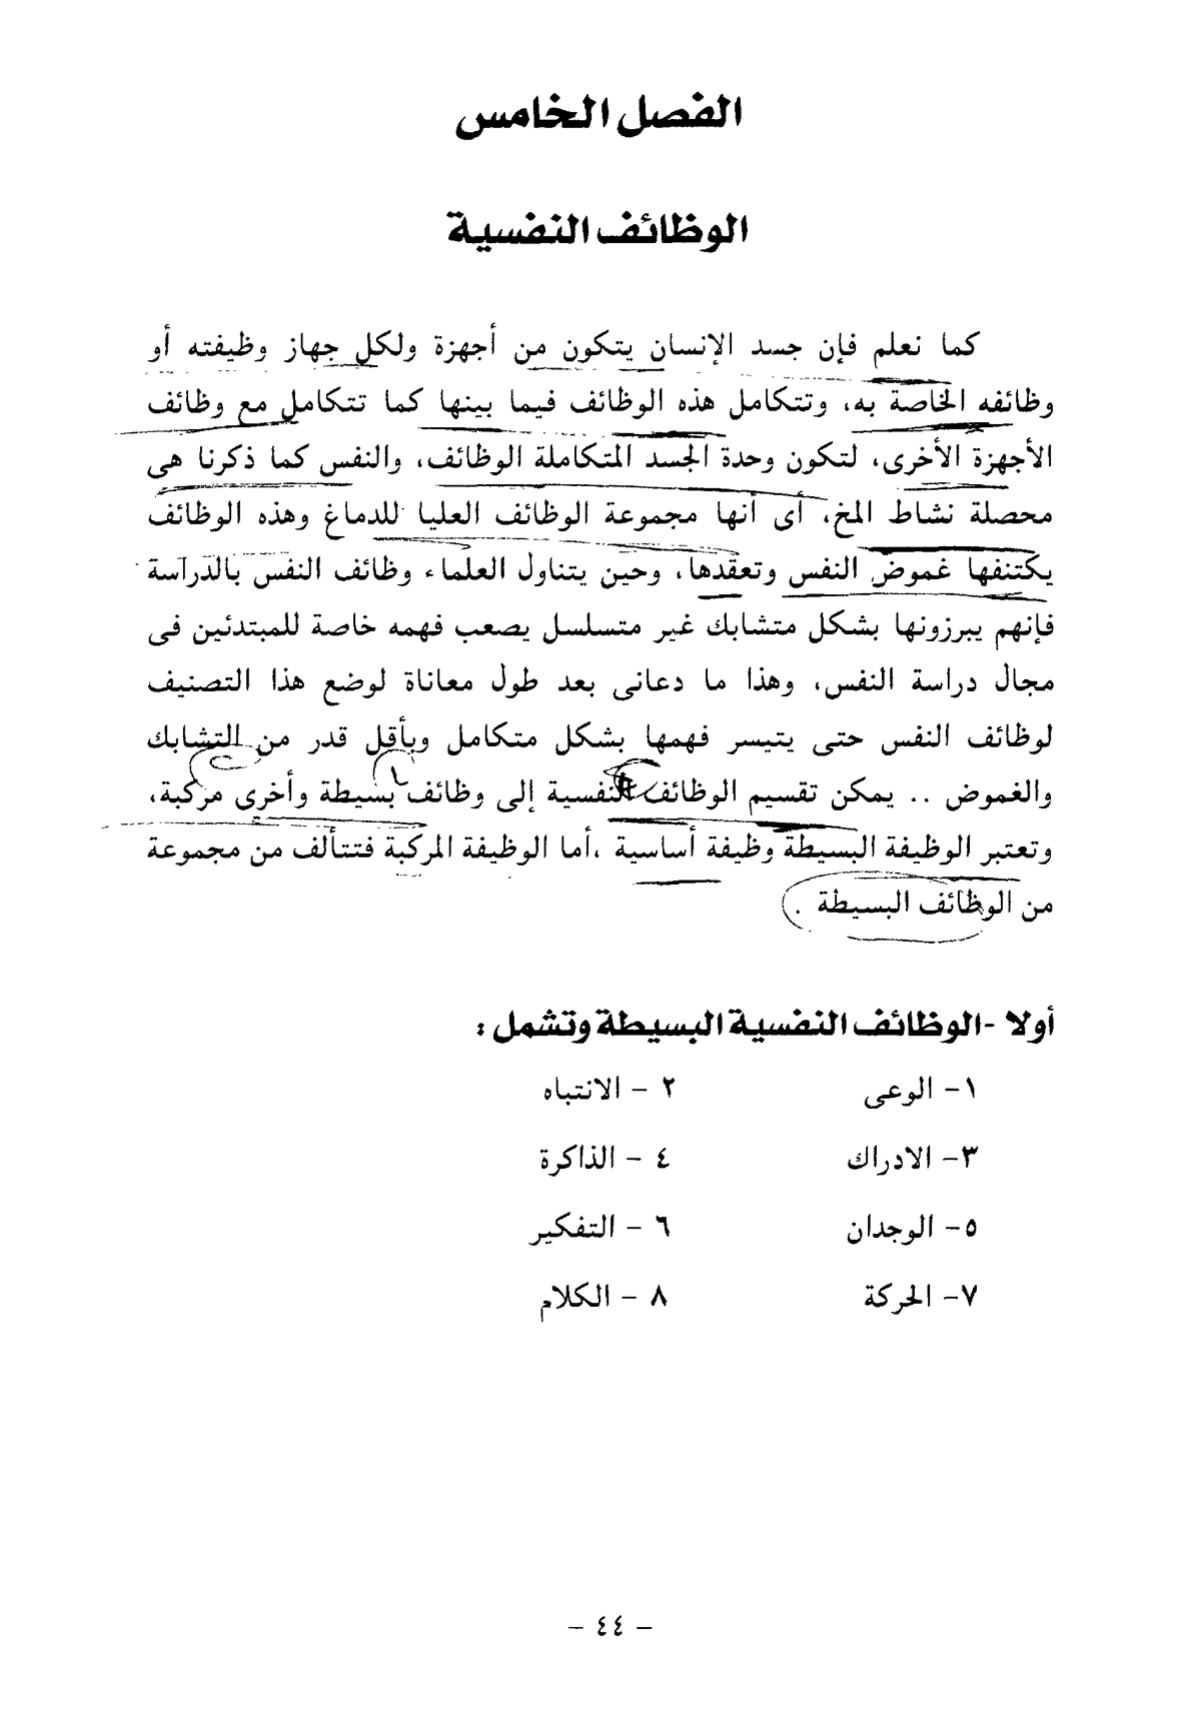 الفصل الخامس
الوظائف النفسية
كما نعلم فإن جسد الإنسان يتكون من أجهزة ولكل جهاز وظيفته أو
وظائفه الخاصة به، وتتكامل هذه الوظائف فيما بينها كما تتكامل مع وظائف
الأجهزة الأخرى، لتكون وحدة الجسد المتكاملة الوظائف، والنفس كما ذكرنا هى
محصلة نشاط المخ، أى أنها مجموعة الوظائف العليا للدماغ وهذه الوظائف
يكتنفها غموض النفس وتعقدها، وحين يتناول العلماء وظائف النفس بالدراسة
فإنهم يبرزونها بشكل متشابك غير متسلسل يصعب فهمه خاصة للمبتدئين فى
مجال دراسة النفس، وهذا ما دعانى بعد طول معاناة لوضع هذا التصنيف
لوظائف النفس حتى يتيسر فهمها بشكل متكامل وبأقل قدر من التشابك
والغموض .. يمكن تقسيم الوظائف النفسية إلى وظائف بسيطة وأخرى مركبة،
وتعتبر الوظيفة البسيطة وظيفة أساسية ،أما الوظيفة المركبة فتتألف من مجموعة
من الوظائف البسيطة .
أولا -الوظائف النفسية البسيطة وتشمل :
١- الوعى ٢ - الانتباه
٣- الادراك ٤ - الذاكرة
٥- الوجدان ٦ - التفكير
٧- الحركة ٨ - الكلام
- ٤٤ -